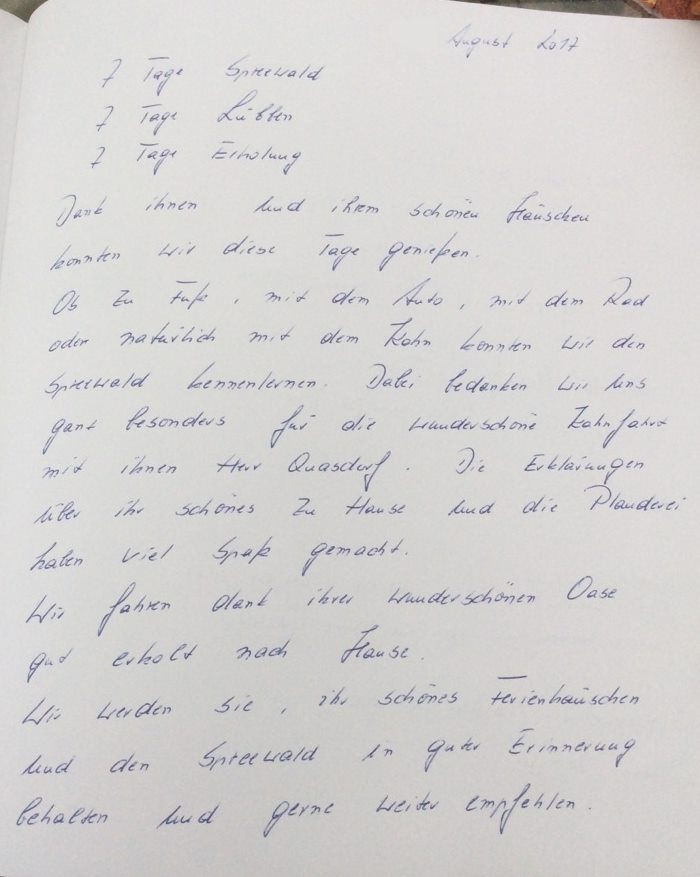 August 2017
7 Tage Spreewald
7 Tage Lübben
7 Tage Erholung
Dank ihnen und ihrem schönen Häuschen
konnten wir diese Tage genießen.
Ob zu Fuß, mit dem Auto, mit dem Rad
oder natürlich mit dem Kahn konnten wir den
Spreewald kennenlernen. Dabei bedanken wir uns
ganz besonders für die wunderschöne Kahnfahrt
mit ihnen Herr Quasdorf. Die Erklärungen
über ihr schönes Zu Hause und die Plauderei
haben viel Spaß gemacht.
Wir fahren dank ihrer wunderschönen Oase
gut erholt nach Hause.
Wir werden sie, ihr schönes Ferienhäuschen
und den Spreewald in guter Erinnerung
behalten und gerne weiter empfehlen.